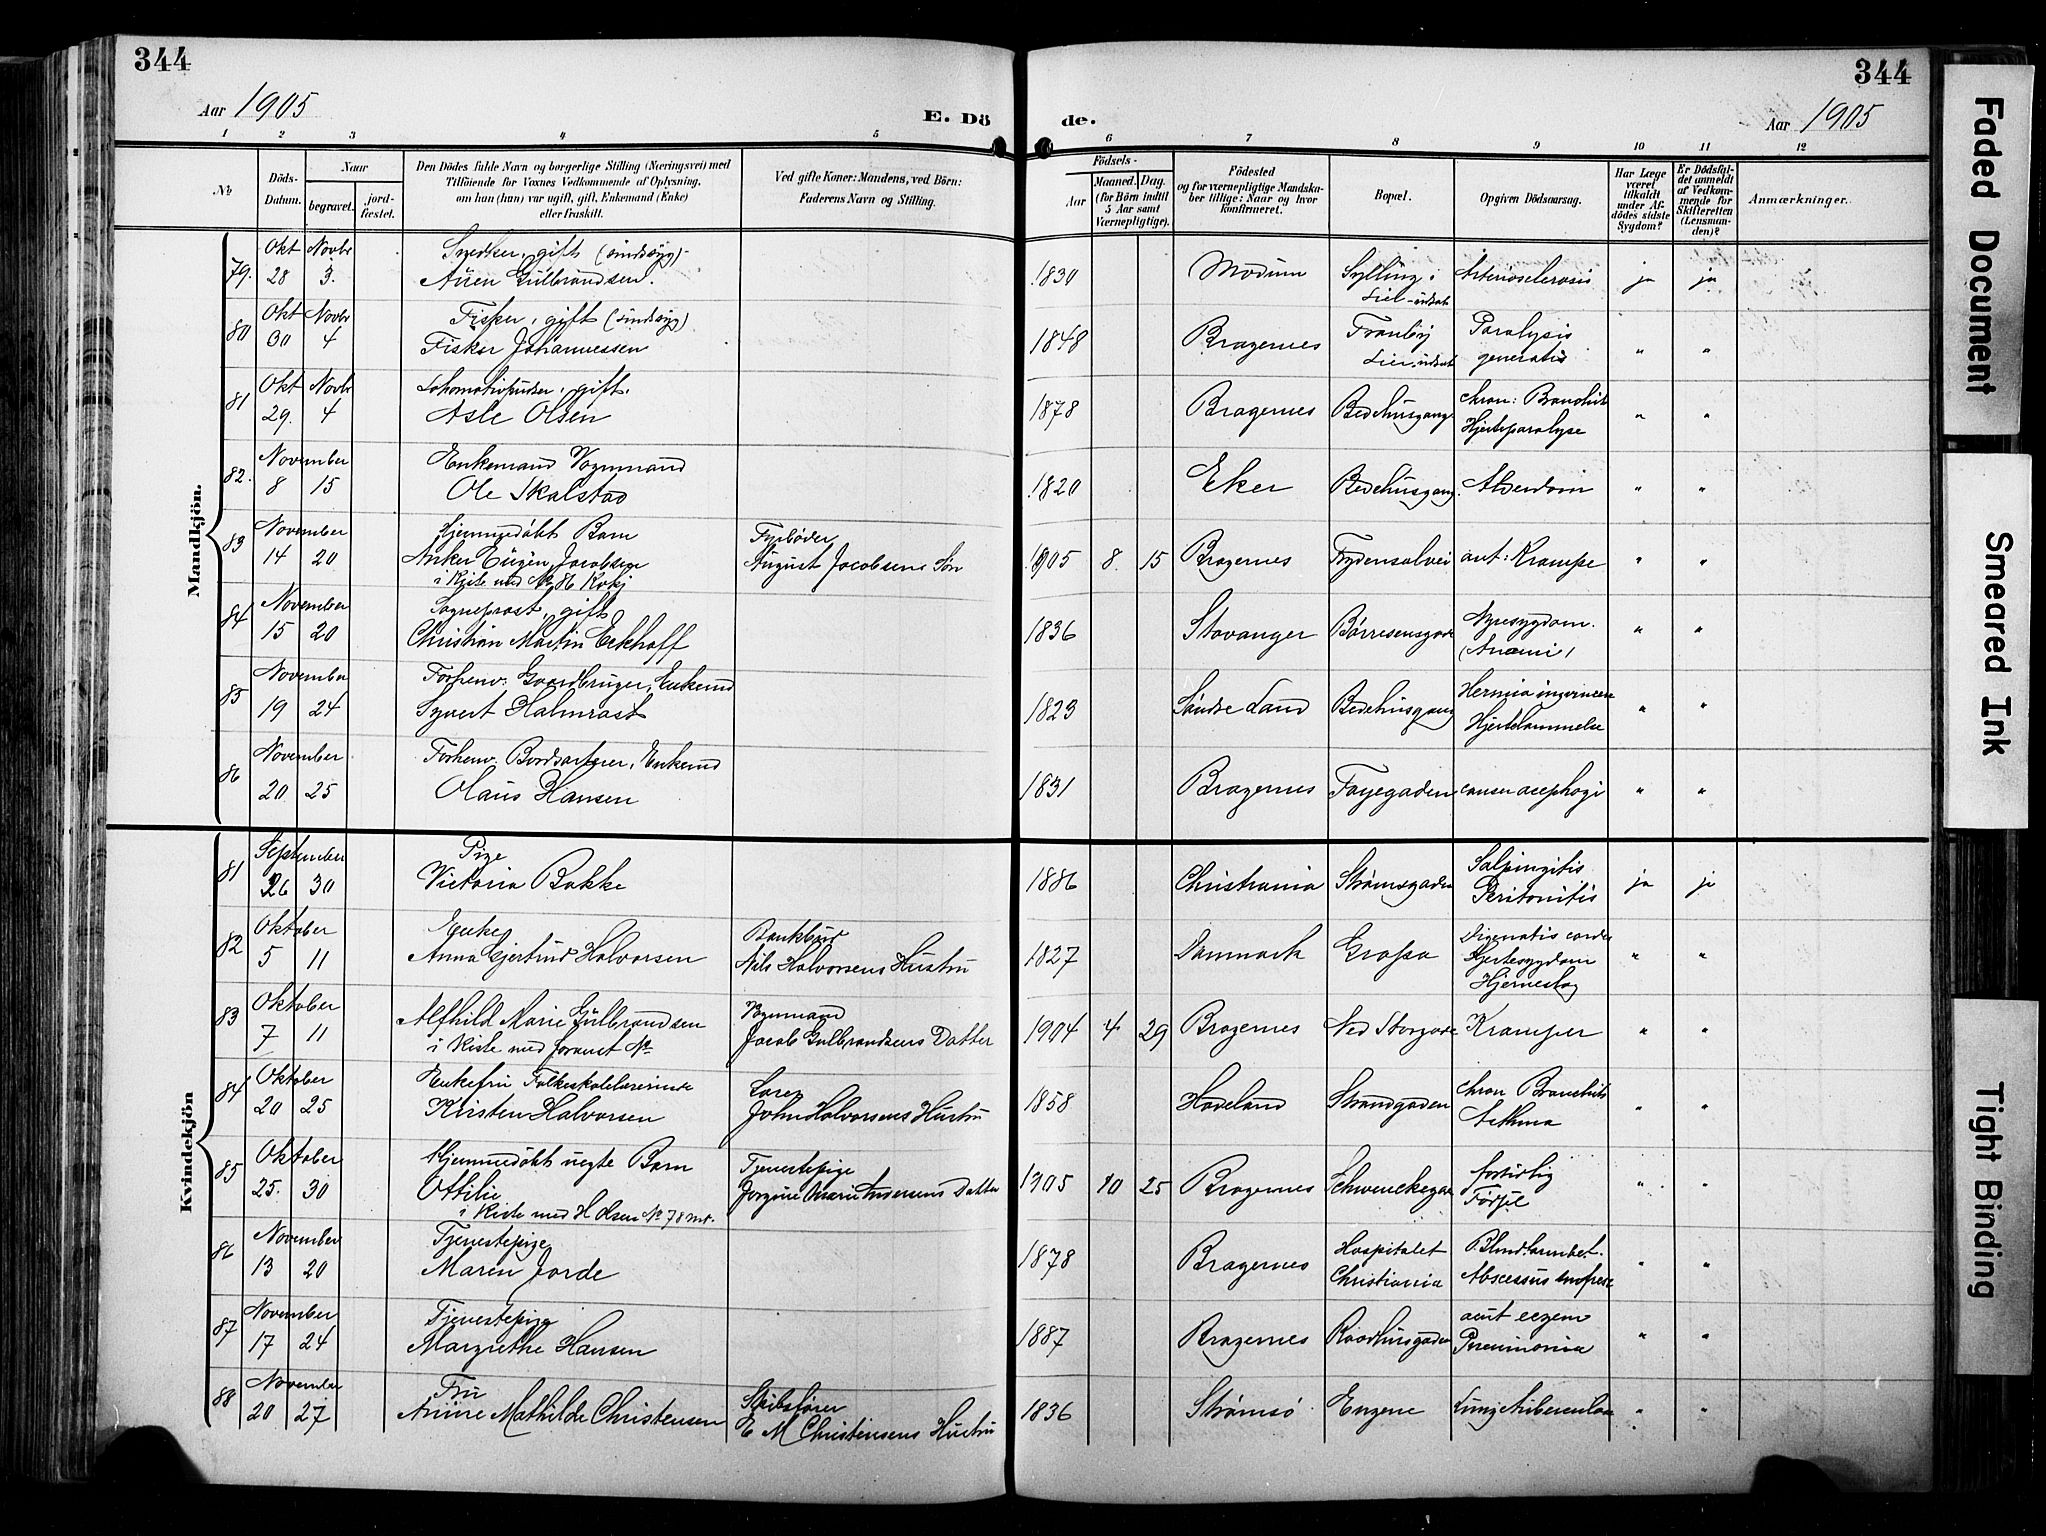 344
344
Aar 1905
E. Dö
de.
Aar 1905
1 2 3 4 5 6 7 8 9 10 11 12
No
Döds-
Datum.
Naar
begravet.
jord-
fæstet.
Den Dödes fulde Navn og borgerlige Stilling (Næringsvei) med
Tilföiende for Voxnes Vedkommende af Oplysning,
om han (hun) var ugift, gift, Enkemand (Enke)
eller fraskilt.
Ved gifte Koner: Mandens, ved Börn:
Faderens Navn og Stilling.
Födsels-
Aar
Maaned. Dag.
(for Börn indtil
5 Aar samt
Værnepligtige).
Födested
og for værnepligtige Mandska-
ber tillige: Naar og hvor
konfirmeret.
Bopæl.
Opgiven Dödsaarsag.
Har Læge
været
tilkaldt
under Af-
dödes sidste
Sygdom?
Er Dödsfal-
det anmeldt
af Vedkom-
mende for
Skifteretten
(Lensman-
den)?
Anmærkninger.
Mandkjön.
79. Okt Novbr Snedker, gift (sindssyg)
28 3. Aüen Gulbrandsen. 1830 Modum Sylling i Arteriosclerosis ja ja
Lier
80 Okt Novbr Fisker, gift (sindssyg)
30 4 Fisker Johannessen 1848 Bragernes Tranby Paralysis " "
Lier generalis
81 Okt Novbr Lokomotivpudser, gift.
29. 4 Asle Olsen 1878 Bragernes Bedehusgang chron: Bronchit " "
Hjerteparalyse
82. November Enkemand Vognmand
8 15 Ole Skalstad 1820 Eker Bedehusgang. Alderdom " "
83 November Hjemmedöbt Barn Fyrbøder
14 20 Anker Eugen Jacobsen August Jacobsens Søn 1905 8. 15 Bragernes Frydensalvei Krampe " "
i Kiste med No 86
84 November Sogneprest, gift
15 20 Christian Martin Eckhoff 1836 Stavanger Børresensgade Nyresygdom. " "
(Anæmi)
85 November Forhenv. Gaardbruger, Enkemd
19 24 Syvert Halmrast 1823 Søndre Land Bedehusgang Hernia " "
Hjertelammelse
86 November Forhenv. Bordsorterer, Enkemd
20 25 Olaus Hansen 1831 Bragernes Fayegaden cancer " "
Kvindekjön
81 September Pige
26 30 Victoria Bakke 1886 Christiania Strømsgaden Salpingitis ja ja
Peritonitis
82 Oktober Enke Bankbud
5 11 Anna Gjertrud Halvorsen Nils Halvorsens Hustru 1827 Danmark Grossa cordis " "
Hjertesygdom
Hjerneslag
83 Oktober Vognmand
7 11 Alfhild Marie Gulbrandsen Jacob Gulbrandsens Datter 1904 4 29 Bragernes Ned Storgade Kramper " "
i Kiste med foranst No
84 Oktober Enkefru Folkeskolelærerinde
20 25 Kirsten Halvorsen John Halvorsens Hustru 1858 Hadeland Strandgaden chron Bronchitis " "
Asthma
85 Oktober Hjemmedöbt uegte Barn Tjenestepige
25. 30 Ottilie Jorgine Marie Andersens Datter 1905 10 25 Bragernes Schwenckegd fortidlig " "
i Kiste med H Olsen No 78 mk. Fødsel
86 November Tjenestepige
13 20 Maren Jorde 1878 Bragernes Hospitalet Blindtarmbet. " "
Christiania Abscessus
87 November Tjenestepige
17 24 Margrethe Hansen 1887 Bragernes Raadhusgaden eczem " "
Pneumonia
88 November Fru Skibsfører
20 27 Anine Mathilde Christensen E M Christensens Hustru 1836 Strømsö Engene Lungetuberculose " "
Faded Document
Smeared Ink
Tight Binding